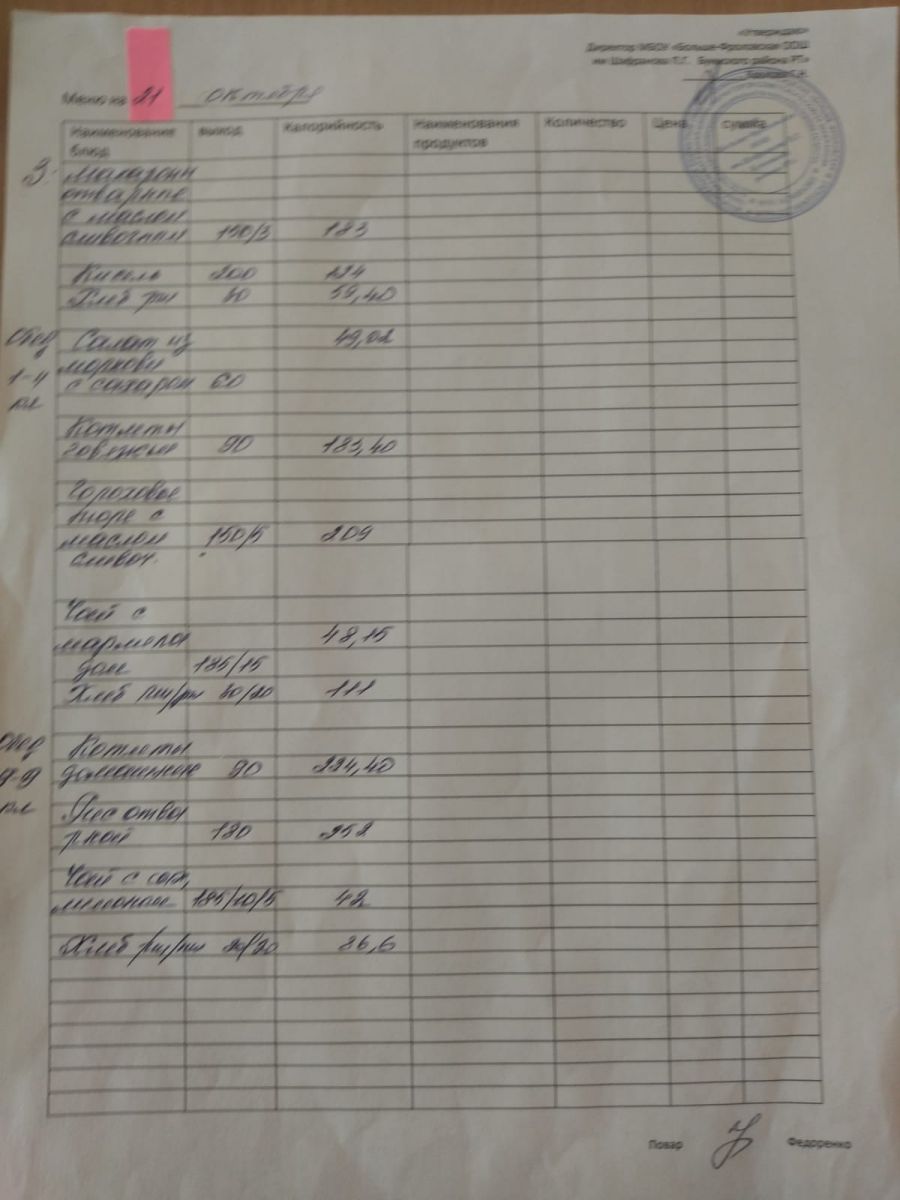 «Утверждаю»
Директор МБОУ «Больше-Фроловская ООШ
им Шафранова П.Г. Буинского района РТ»
Меню на 21 октября
Наименование блюд выход Калорийность Наименования продуктов Количество Цена сумма
З. Макароны
отварные
с маслом
сливочным 150/3 183
Кисель 200 124
Хлеб рж 30 59,40
Обед Салат из 49,02
моркови
1-4 с сахаром 60
кл
Котлеты
говяжьи 90 183,40
Гороховое
пюре с
маслом 150/5 209
сливоч.
Чай с
мармела 48,15
дом 185/15
Хлеб пш/рж 30/20 111
Обед Котлеты
домашние 90 224,40
кл Рис отва
рной 180 252
Чай с сах,
лимоном 185/10/5 42
Хлеб 20/20 86,6
Повар Федоренко